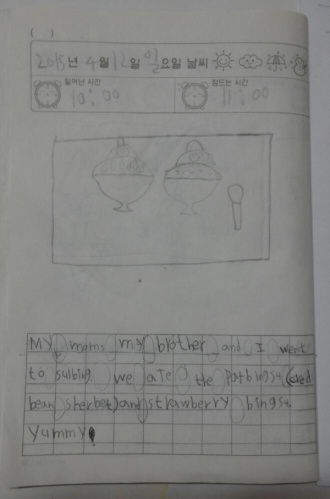 ( )
2015년 4월 12일 일요일 날씨
일어난 시간 잠드는 시간
10:00 11:00
My moms my brother and I went
to sulbing we ate the patbingsu (red
bean sherbet) and strawberry bingsu.
Yummy!